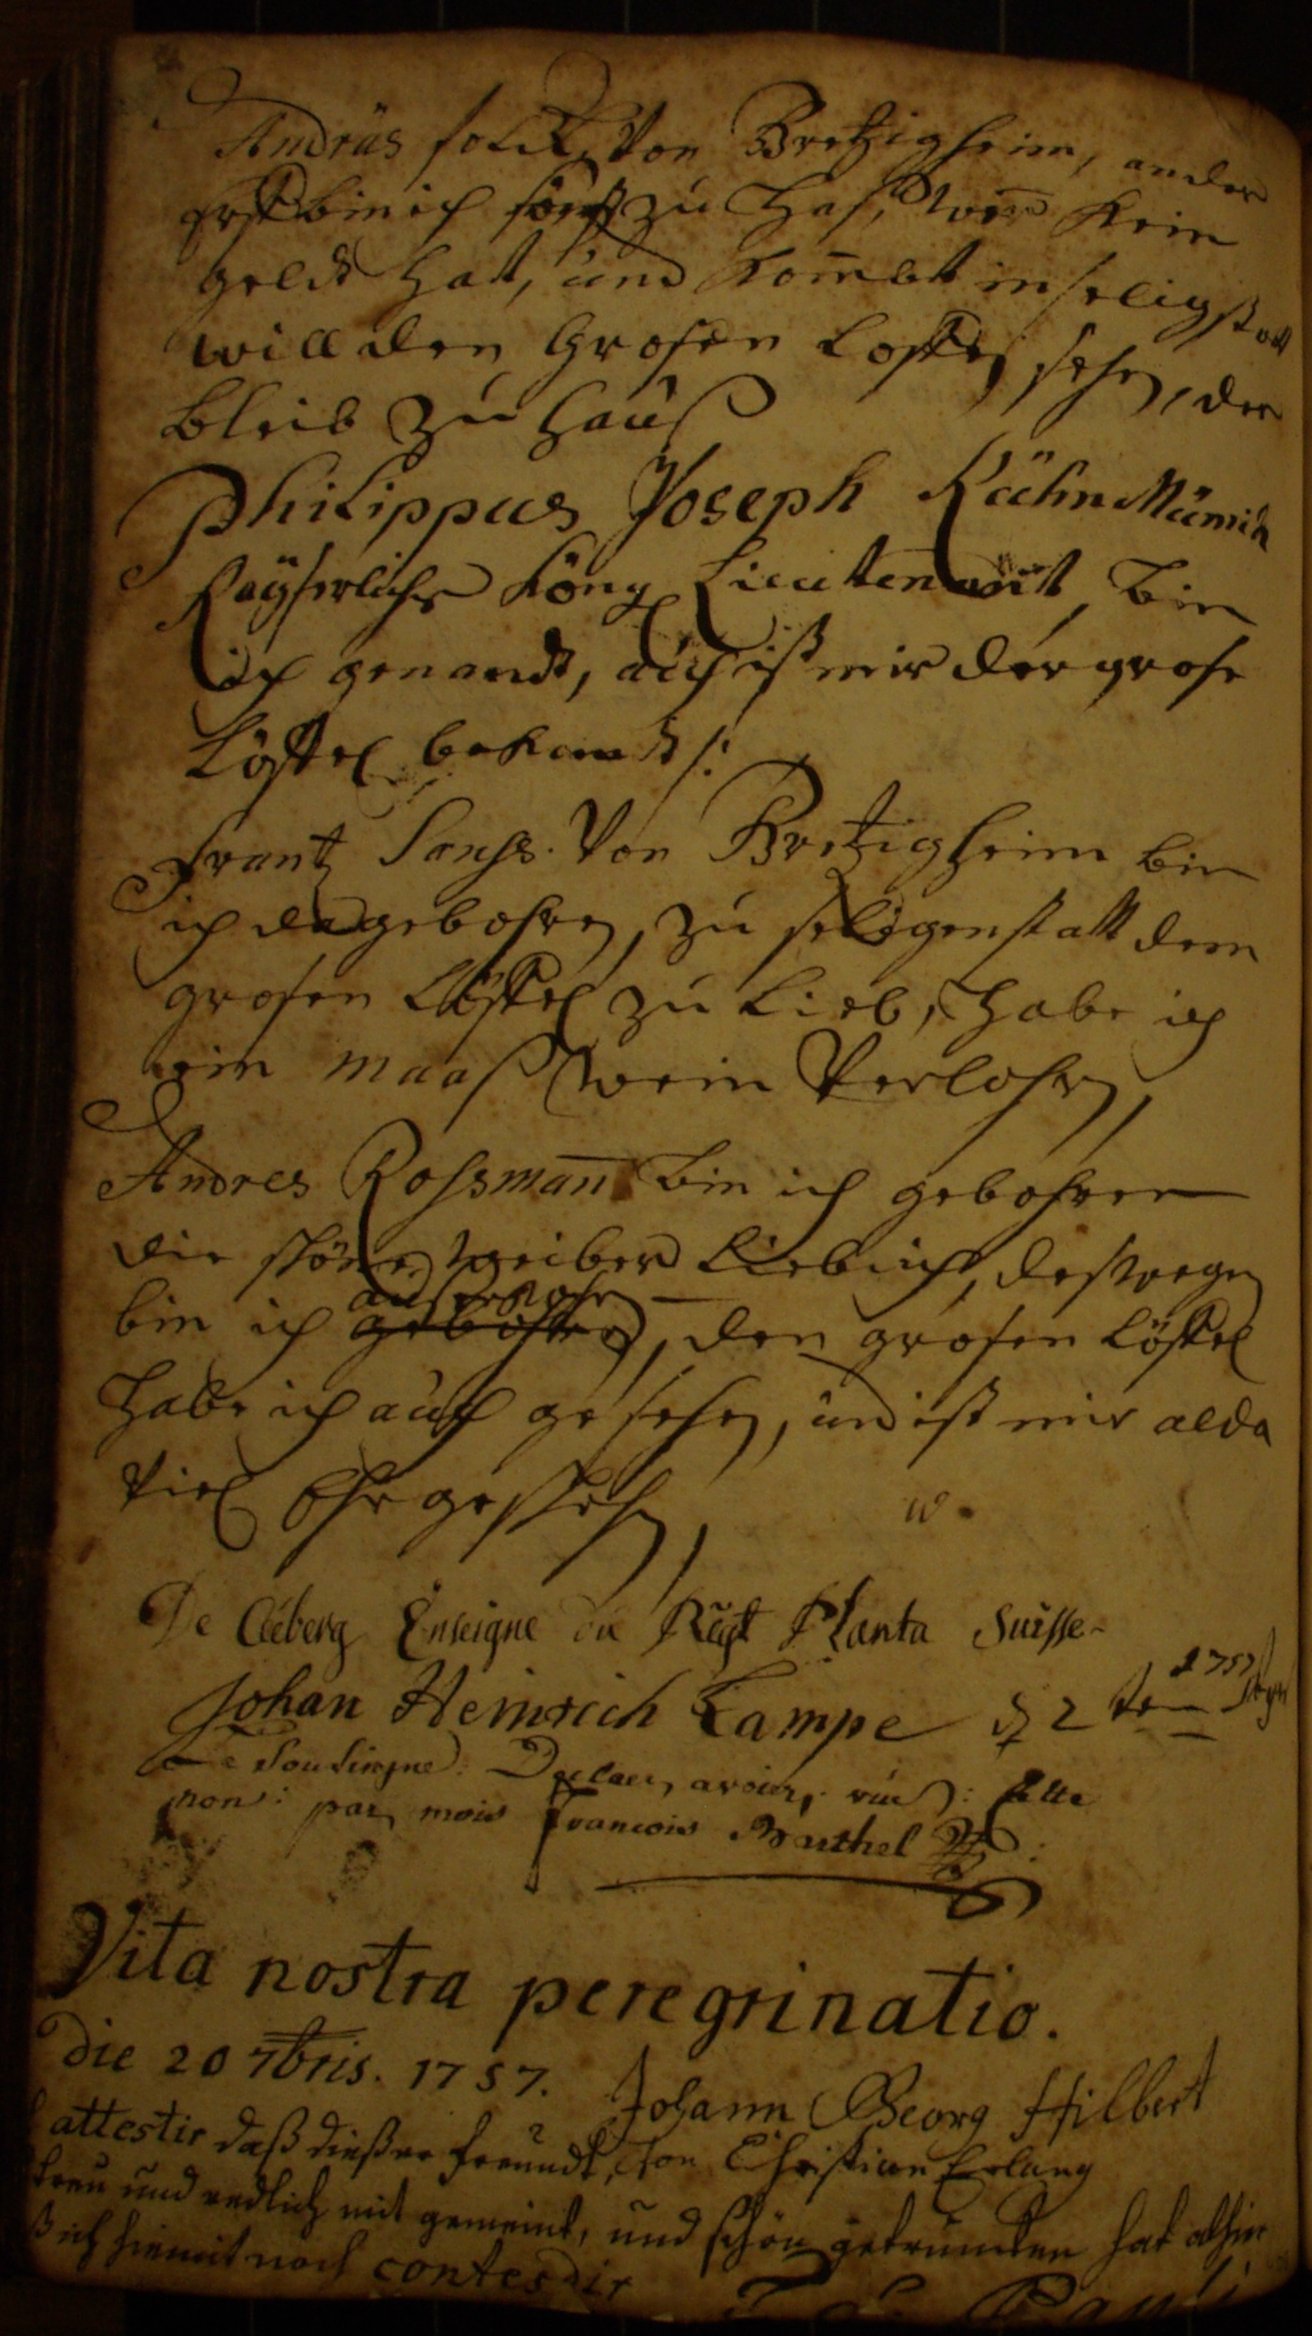 Andräs von Bretzigheim, ander
bin ich zu Haß, wer Kein
geldt hat, und Kombt in seligstatt
will den Grosen Löffel sehen, der
bleib zu Hauß
Philippus Joseph Kühn
Kayserlicher König Lieutenant, bin
ich genandt, auch ist mir der grose
Löffel bekandt /:
Frantz von Bretzigheim bin
ich da gebohren, zu seligenstatt dem
grosen Löffel zu Lieb, habe ich
ein maaß wein Verlohren,
Andres Rossman̅ bin ich gebohren
die schöne weiber Lieb ich, desswegen
bin ich auserkohren, den grosen Löffel
Habe ich auch gesehen, und ist mir alda
Viel Ehr geschehen,
w
De Enseigne du Regt Planta Suisse
Johan Heinrich Lampe 1757
Le Sousigne. Declare avoire vue: Cette
non: par mois Francois Barthel
Vita nostra peregrinatio.
die 20 7bris. 1757. Johann Georg Hilbert
attestir daß dießer freundt, von Christian Erlang
treu und redlich mit gemeint, und schön getruncken hat alhier
ß ich hiemit noch contestir